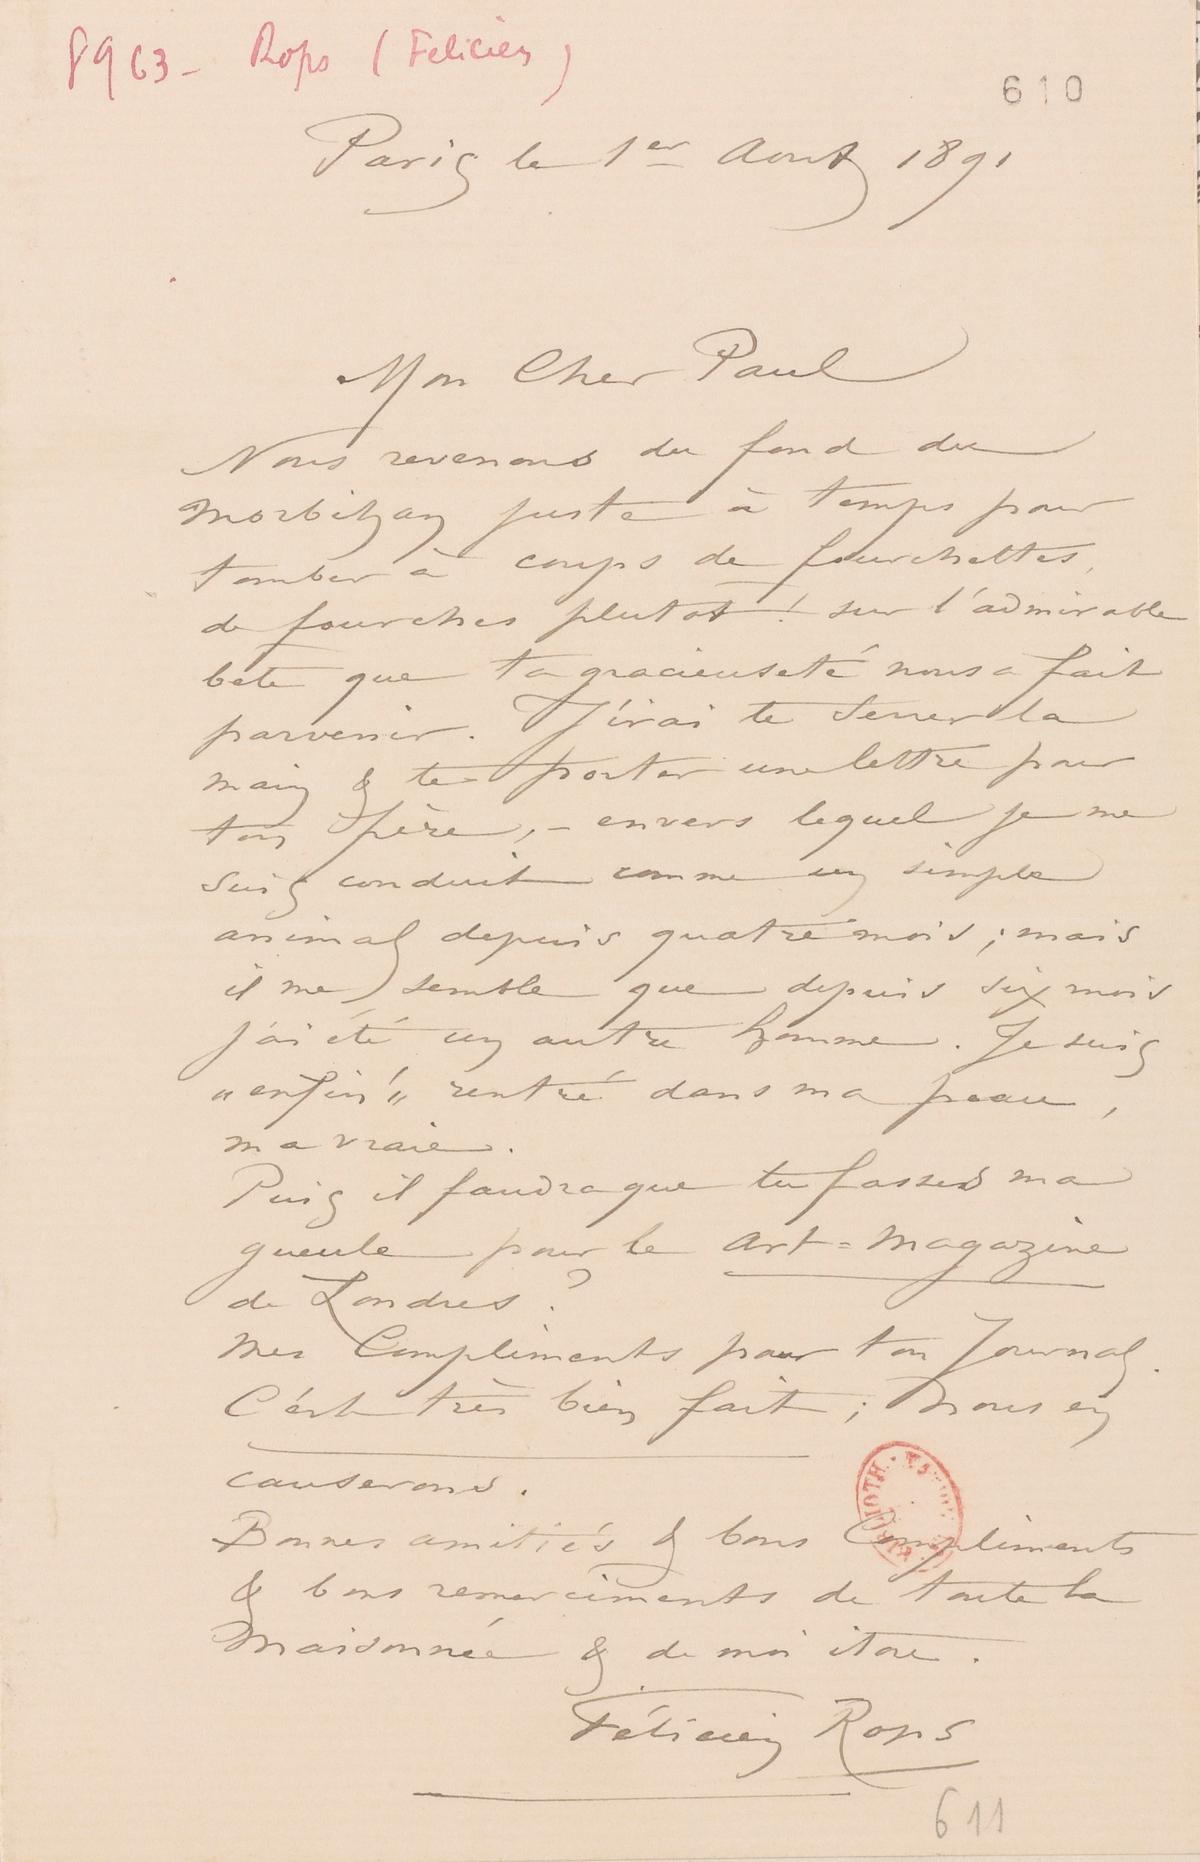 8963 - Rops (Félicien)
610
Paris le 1er Aout 1891
Mon Cher Paul
Nous revenons du fond du
Morbihan juste à temps pour
tomber à coups de fourchettes,
de fourches plutot ! sur l'admirable
bete que ta gracieuseté nous a fait
parvenir. J'irai te serrer la
main & te porter une lettre pour
ton père, - envers lequel je me
suis conduit comme un simple
animal depuis quatre mois ; mais
il me semble que depuis six mois
j'ai été un autre homme. Je suis
"enfin!" rentré dans ma peau,
ma vraie.
Puis il faudra que tu fasses ma
gueule pour le Art = Magazine
de Londres ?
Mes Compliments pour ton Journal.
C'est très bien fait ; Nous en
causerons.
Bonnes amitiés & bons Compliments
& bons remerciments de toute la
Maisonnée & de moi itou.
Félicien Rops
611